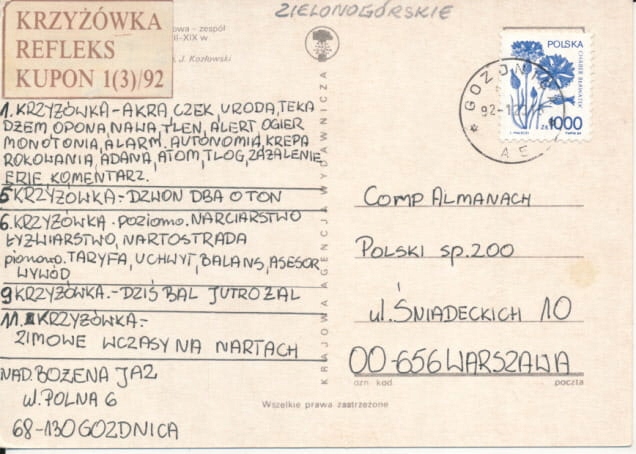 KRZYŻÓWKA
REFLEKS
KUPON 1(3)/92
owa – zespół
II-XIX w
J. Kozłowski
ZIELONOGÓRSKIE
POLSKA
CHABER BŁAWATEK
ZŁ 1000
GOZDNICA
92-1
A
1. KRZYŻÓWKA – AKRA CZEK, URODA, TEKA
DŻEM OPONA, NAWA, TLEN, ALERT OGIER
MONOTONIA, ALARM, AUTONOMIA, KREPA
ROKOWANIA, ADANA, ATOM, TLOG, ZAŻALENIE,
ERIE KOMENTARZ.
5 KRZYŻÓWKA – DZWON DBA O TON
6. KRZYŻÓWKA. poziomo. NARCIARSTWO
ŁYŻWIARSTWO, NARTOSTRADA
pionowo. TARYFA, UCHWYT, BALANS, ASESOR
WYWÓD
9 KRZYŻÓWKA. – DZIŚ BAL JUTRO ŻAL
11. KRZYŻÓWKA –
ZIMOWE WCZASY NA NARTACH
NAD. BOŻENA JAZ
ul. POLNA 6
68-130 GOZDNICA
KRAJOWA AGENCJA WYDAWNICZA
COMP ALMANACH
POLSKI sp. 200
ul. ŚNIADECKICH 10
00-656 WARSZAWA
ozn kod
poczta
Wszelkie prawa zastrzeżone